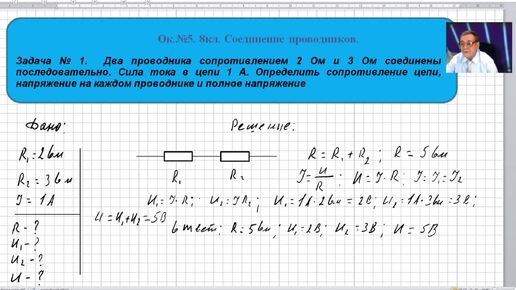 Ок.№5. 8кл. Соединение проводников.
Задача № 1. Два проводника сопротивлением 2 Ом и 3 Ом соединены
последовательно. Сила тока в цепи 1 А. Определить сопротивление цепи,
напряжение на каждом проводнике и полное напряжение
Дано:
R₁=2Ом
R₂=3Ом
I=1А
R-?
U₁-?
U₂-?
U-?
Решение:
R₁ R₂
R=R₁+R₂; R=5Ом
I=U/R; U=I·R; I=I₁=I₂
U₁=I·R₁; U₂=IR₂; U₁=1А·2Ом=2В; U₂=1А·3Ом=3В;
U=U₁+U₂=5В
Ответ: R=5Ом; U₁=2В; U₂=3В; U=5В